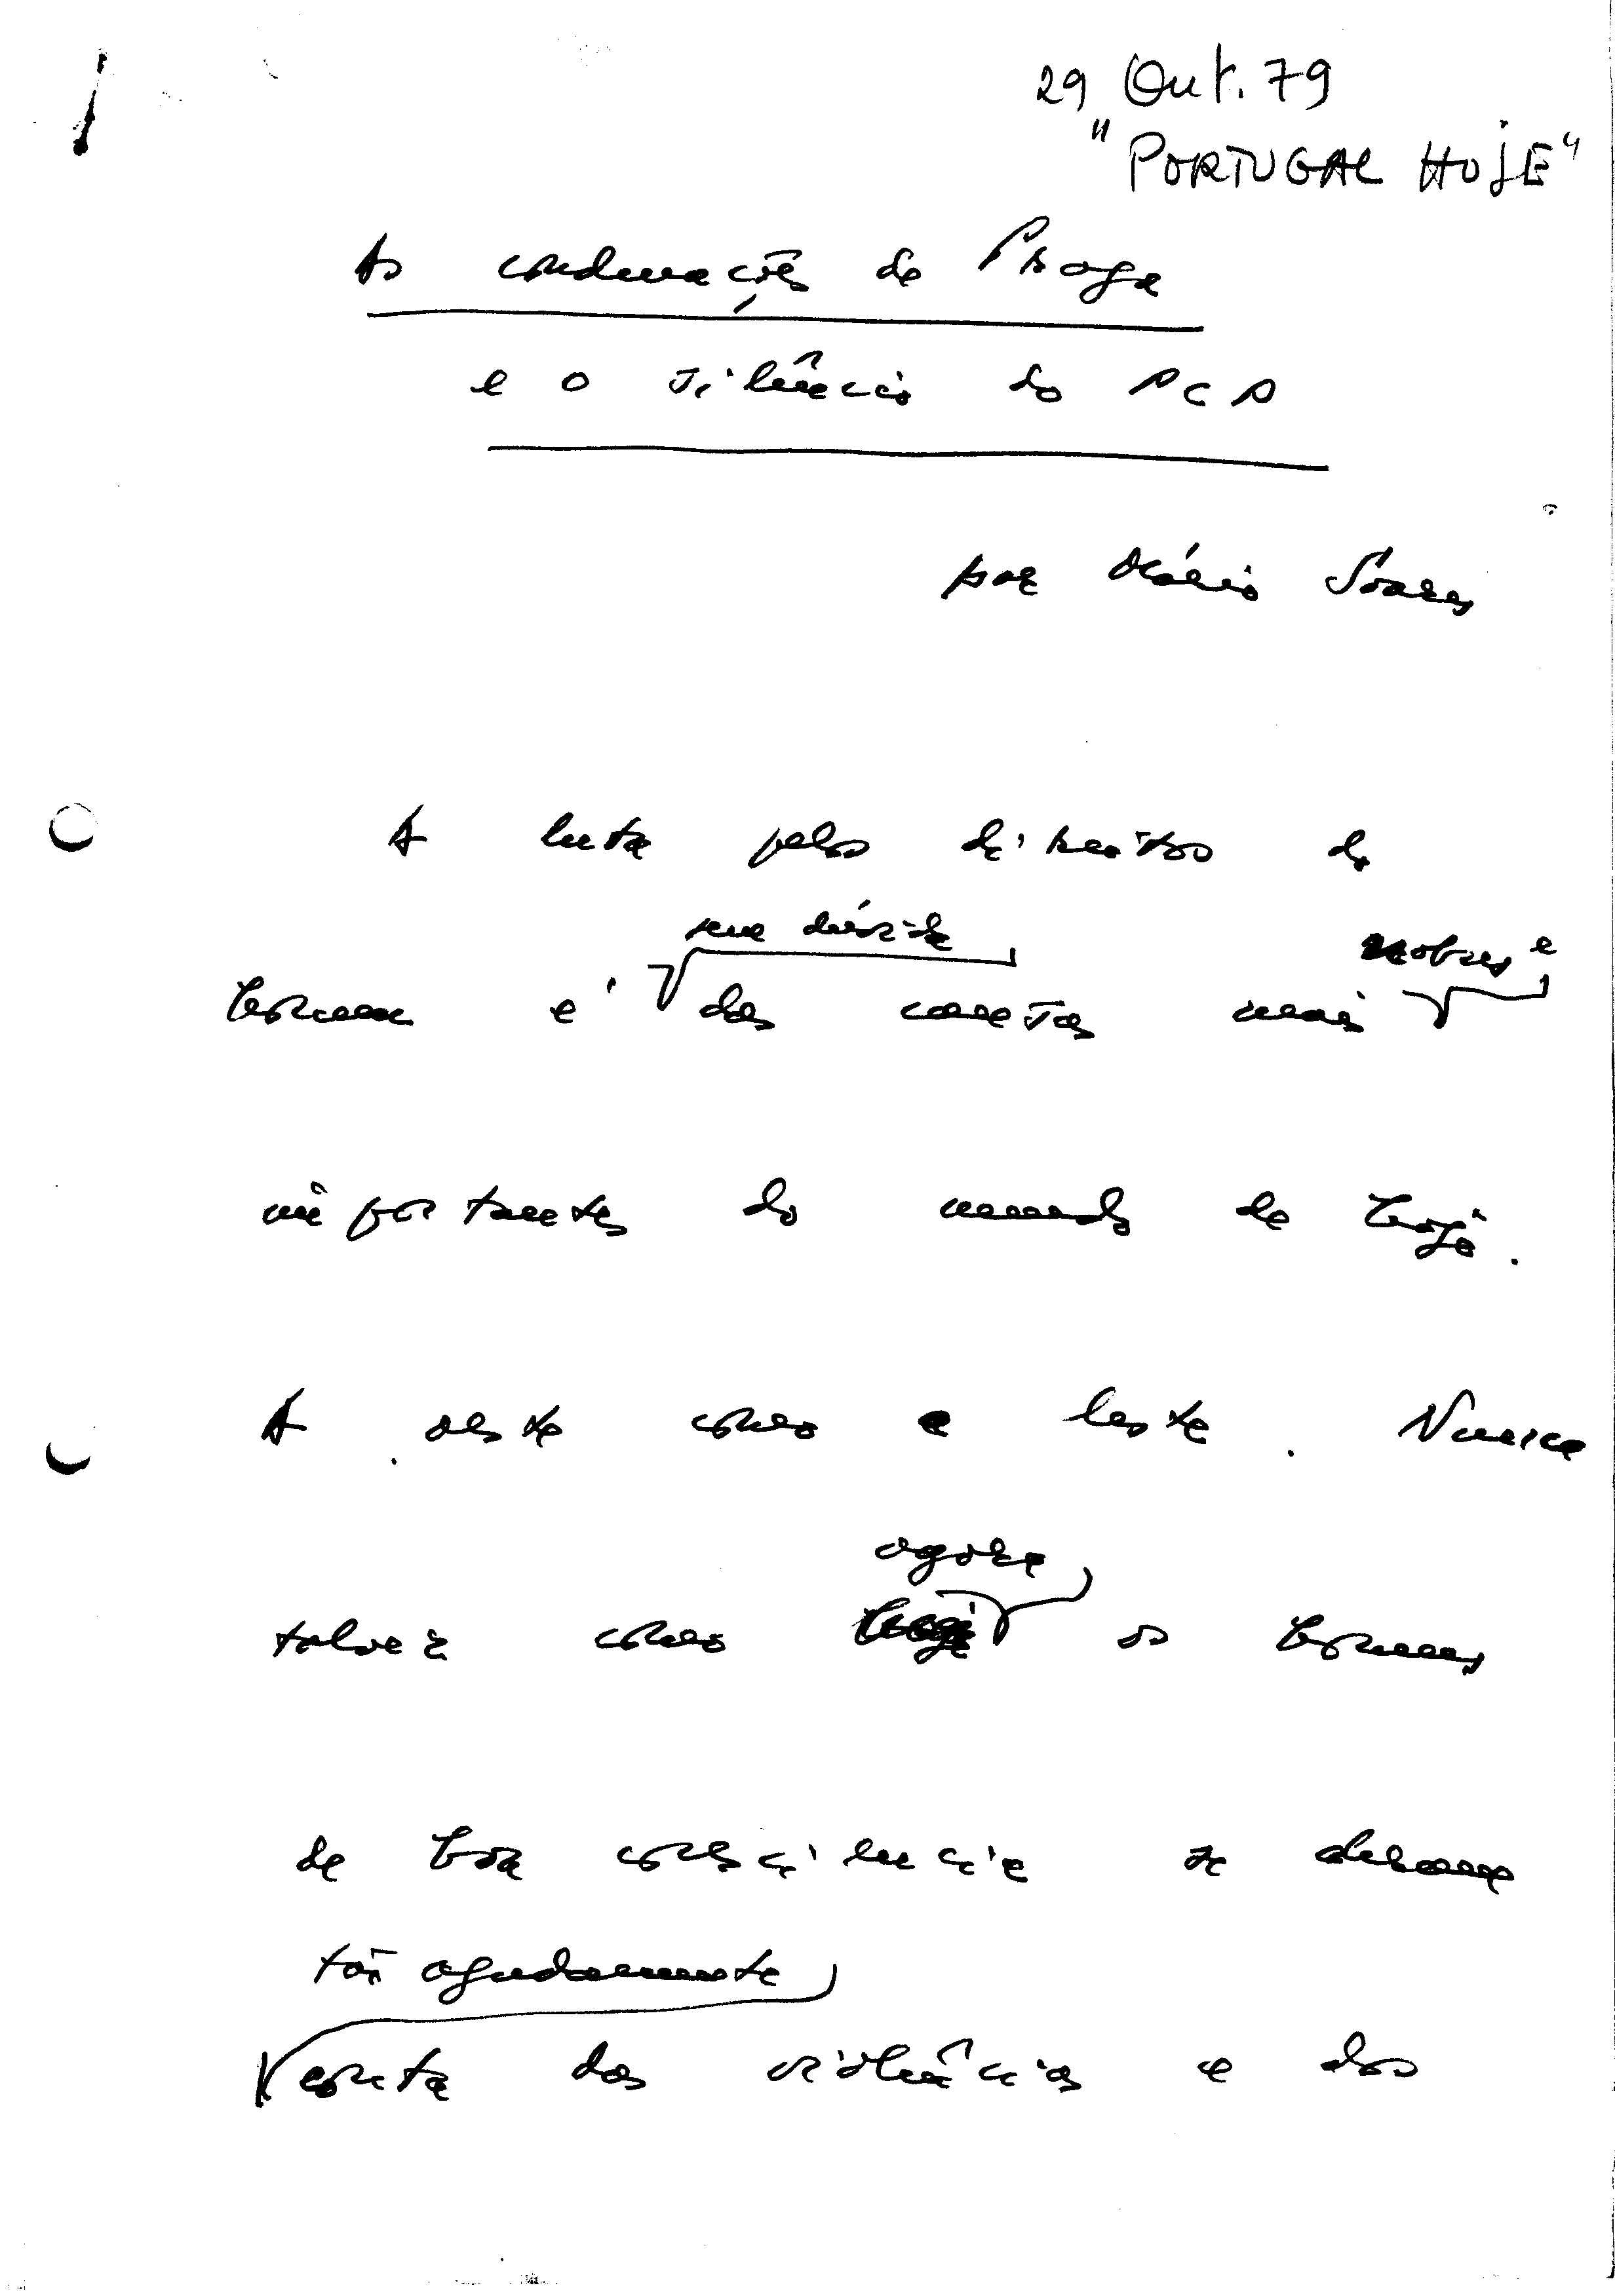 29 Out. 79
"PORTUGAL HOJE"
As condenações de Praga
e o silêncio do PCP
por Mário Soares
A luta pelos direitos do
sem dúvida
nobres e
homem é das causas mais
importantes do mundo de hoje.
A oeste como a leste. Nunca
agora
talvez como os homens
de boa consciência se deram
tão agudamente
conta das violências e dos